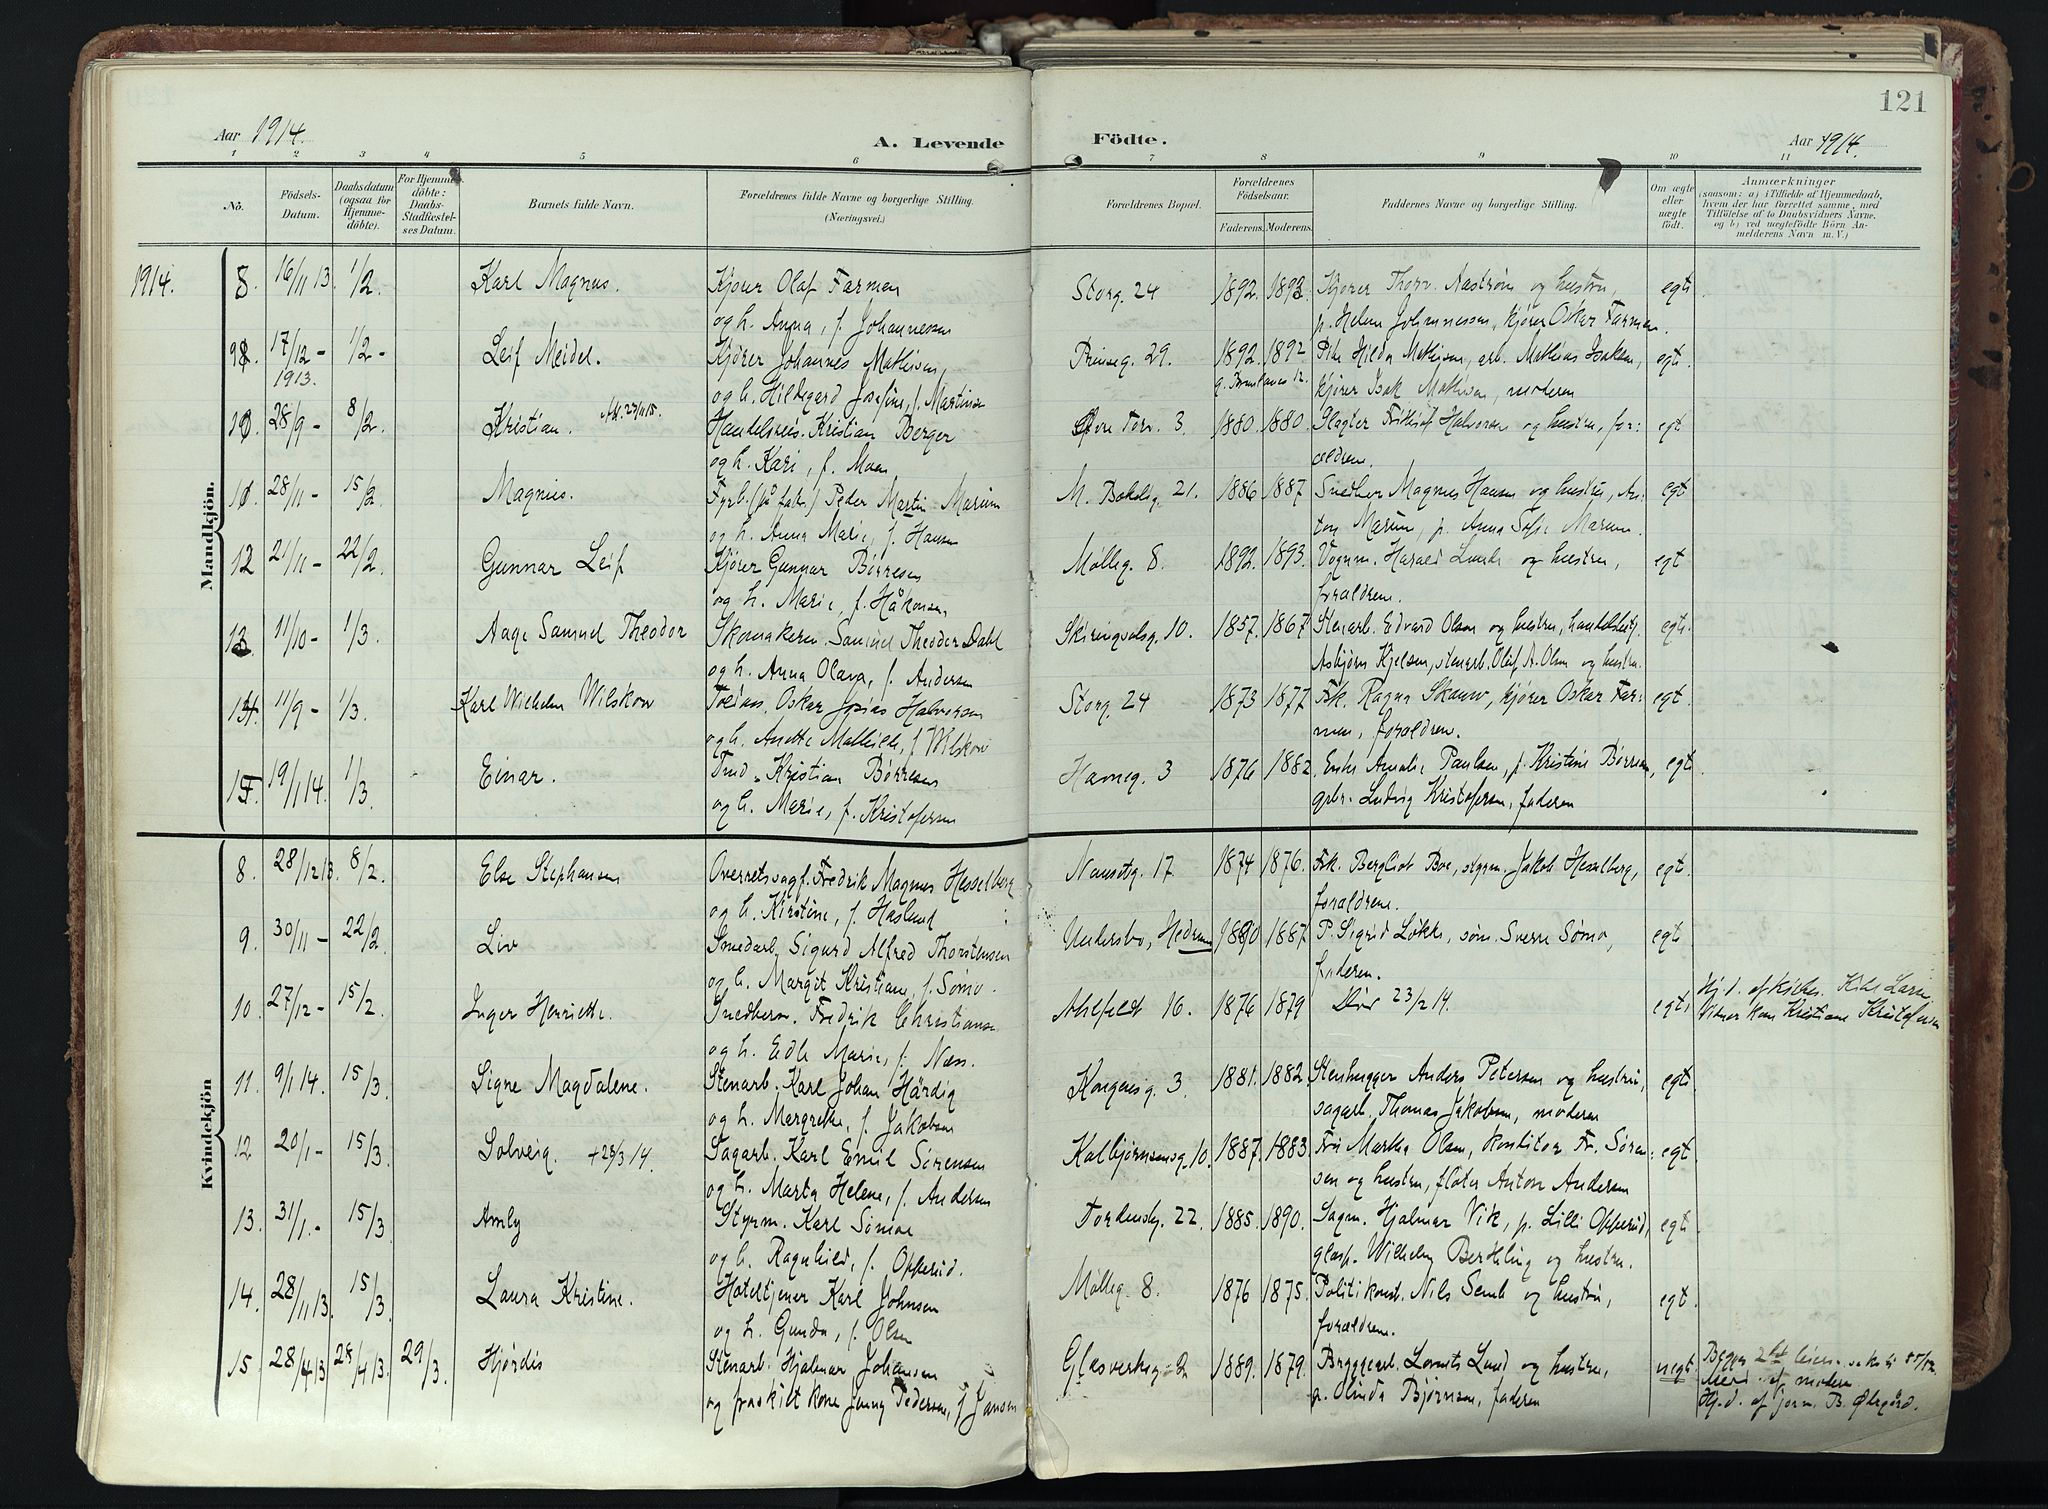 121
Aar 1914.
A. Levende Födte.
Aar 1914.
1 2 3 4 5 6 7 8 9 10 11
No.
Födsels-Datum.
Daabsdatum (ogsaa for Hjemme-döbte).
For Hjemme-döbte: Daabs-Stadfæstel-ses Datum.
Barnets fulde Navn.
Forældrenes fulde Navne og borgerlige Stilling. (Næringsvei.)
Forældrenes Bopæl.
Forældrenes Födselsaar.
Faderens. Moderens.
Faddernes Navne og borgerlige Stilling.
Om ægte eller uægte födt.
Anmærkninger
(saasom: a) i Tilfælde af Hjemmedaab, hvem der har forrettet samme, med Tilföielse af to Daabsvidners Navne, og b) ved uegtefödte Börn An-melderens Navn m. V.)
Mandkjön.
1914. 8. 16/11 13. 1/2. Karl Magnus. Kjører Olaf Farmen Storg. 24 1892. 1892. Kjører Thorv. Aaström og hustru, egt.
og h. Anna, f. Johannessen p. Helene Johannessen, kjører Oskar Farmen.
9. 17/12 - 1/2 - Leif Meidel. Kjører Johannes Mathisen, Prinseg. 29. 1892. 1892 Pike Hilda Mathisen, arb. Mathias Isaksen, egt.
1913. og h. Hildegard Josefine, f. Martinsen kjører Isak Mathisen, moderen
10. 28/9 - 8/2. Kristian. Att. 23/11 15. Handelsreis. Kristian Berger Øvre Torv. 3. 1880. 1880. Slagter Fritjof Halvorsen og hustru, for-egt
og h. Kari, f. Moen ældrene.
11. 28/11 - 15/2. Magnus. Fyrb. (på fabr.) Peder Martin Marum M. Bakkeg. 21. 1886 1887 Snedker Magnus Hansen og hustru, An-egt
og h. Anna Marie, f. Hansen ton Marum, p. Anna Sofie Marum.
12 21/11 - 22/2. Gunnar Leif Kjører Gunnar Børresen Mølleg. 8. 1892. 1893. Vognm. Harald Lunde og hustru, egt
og h. Marie, f. Håkonsen forældrene.
13. 11/10 - 1/3. Aage Samuel Theodor Skomakerm. Samuel Theodor Dahl Skiringsalsg. 10. 1857. 1867 Stenarb. Edvard Olsen og hustru, handelsbetj. egt.
og h. Anna Olava, f. Andersen Asbjørn Kjelsen, stenarb. Olaf A. Olsen og hustru.
14. 11/9 - 1/3. Karl Wilhelm Wilskow Oskar Josias Halvorsen Storg. 24 1873 1877 Frk. Ragna Skauw, kjører Oskar Far-egt.
og h. Anette Mathilde, f. Wilskow men, forældrene.
15. 19/1 14. 1/3. Einar. Kristian Børresen Havneg. 3 1876 1882. Enke Amalie Paulsen, p. Kristine Børresen, egt.
og h. Marie, f. Kristofersen Ludvig Kristofersen, faderen
Kvindekjön
8. 28/12 13. 8/2. Else Stephansen Overretssagf. Fredrik Magnus Hesselberg Nansetg. 17 1874 1876. Frk. Bergliot Boe, styrm. Jakob Hesselberg, egt.
og h. Kirstine, f. Haslund forældrene.
9. 30/11 - 22/2 Liv Smedarb. Sigurd Alfred Thorstensen Undersbo, Hedrum 1890 1887. P. Sigrid Løkke, søm. Sverre Sømo, egt.
og h. Margit Kristiane, f. Sømo. faderen.
10. 27/12 - 15/2. Inger Henriette. Snedkerm. Fredrik Christiansen Ahlefeldt 16. 1876 1879 Død 23/2 14. egt. Hj.d. af Larsen
og h. Edle Marie, f. Næss. Vidner Kristiane Kristofersen
11. 9/1 14. 15/3. Signe Magdalene. Stenarb. Karl Johan Härdig Kongensg. 3. 1881. 1882. Stenhugger Anders Petersen og hustru, egt.
og h. Margrethe, f. Jakobsen sagarb. Thomas Jakobsen, moderen
12 20/1 - 15/3. Solveig. +28/3 14. Sagarb. Karl Emil Sörensen Kolbjørnsensg. 10. 1887. 1883. Fru Martha Olsen, konditor Fr. Søren-egt.
og h. Marta Helene, f. Andersen sen og hustru, fløter Anton Andersen
13. 31/1. - 15/3. Amly Styrm. Karl Sømoe Tordenskj. 22. 1885. 1890. Sagm. Hjalmar Vik, p. Lilli Opperud, egt.
og h. Ragnhild, f. Opperud. Wilhelm Berthling og hustru.
14. 28/11 13. 15/3. Laura Kristine. Hoteltjener Karl Johnsen Mølleg. 8. 1876 1875. Politikonst. Nils Semb og hustru, egt.
og h. Gunda, f. Olsen forældrene.
15 28/4 13 28/4 13. 29/3. Hjørdis Stenarb. Hjalmar Johansen Glasverksg. 2 1889. 1879. Bryggearb. Lorents Lund og hustru, uegt.
og fraskilt kone Jenny Pedersen, f. Jansen p. Olinda Bjørnsen, faderen af moderen
Hj.d. af jorm. B. Ødegård.